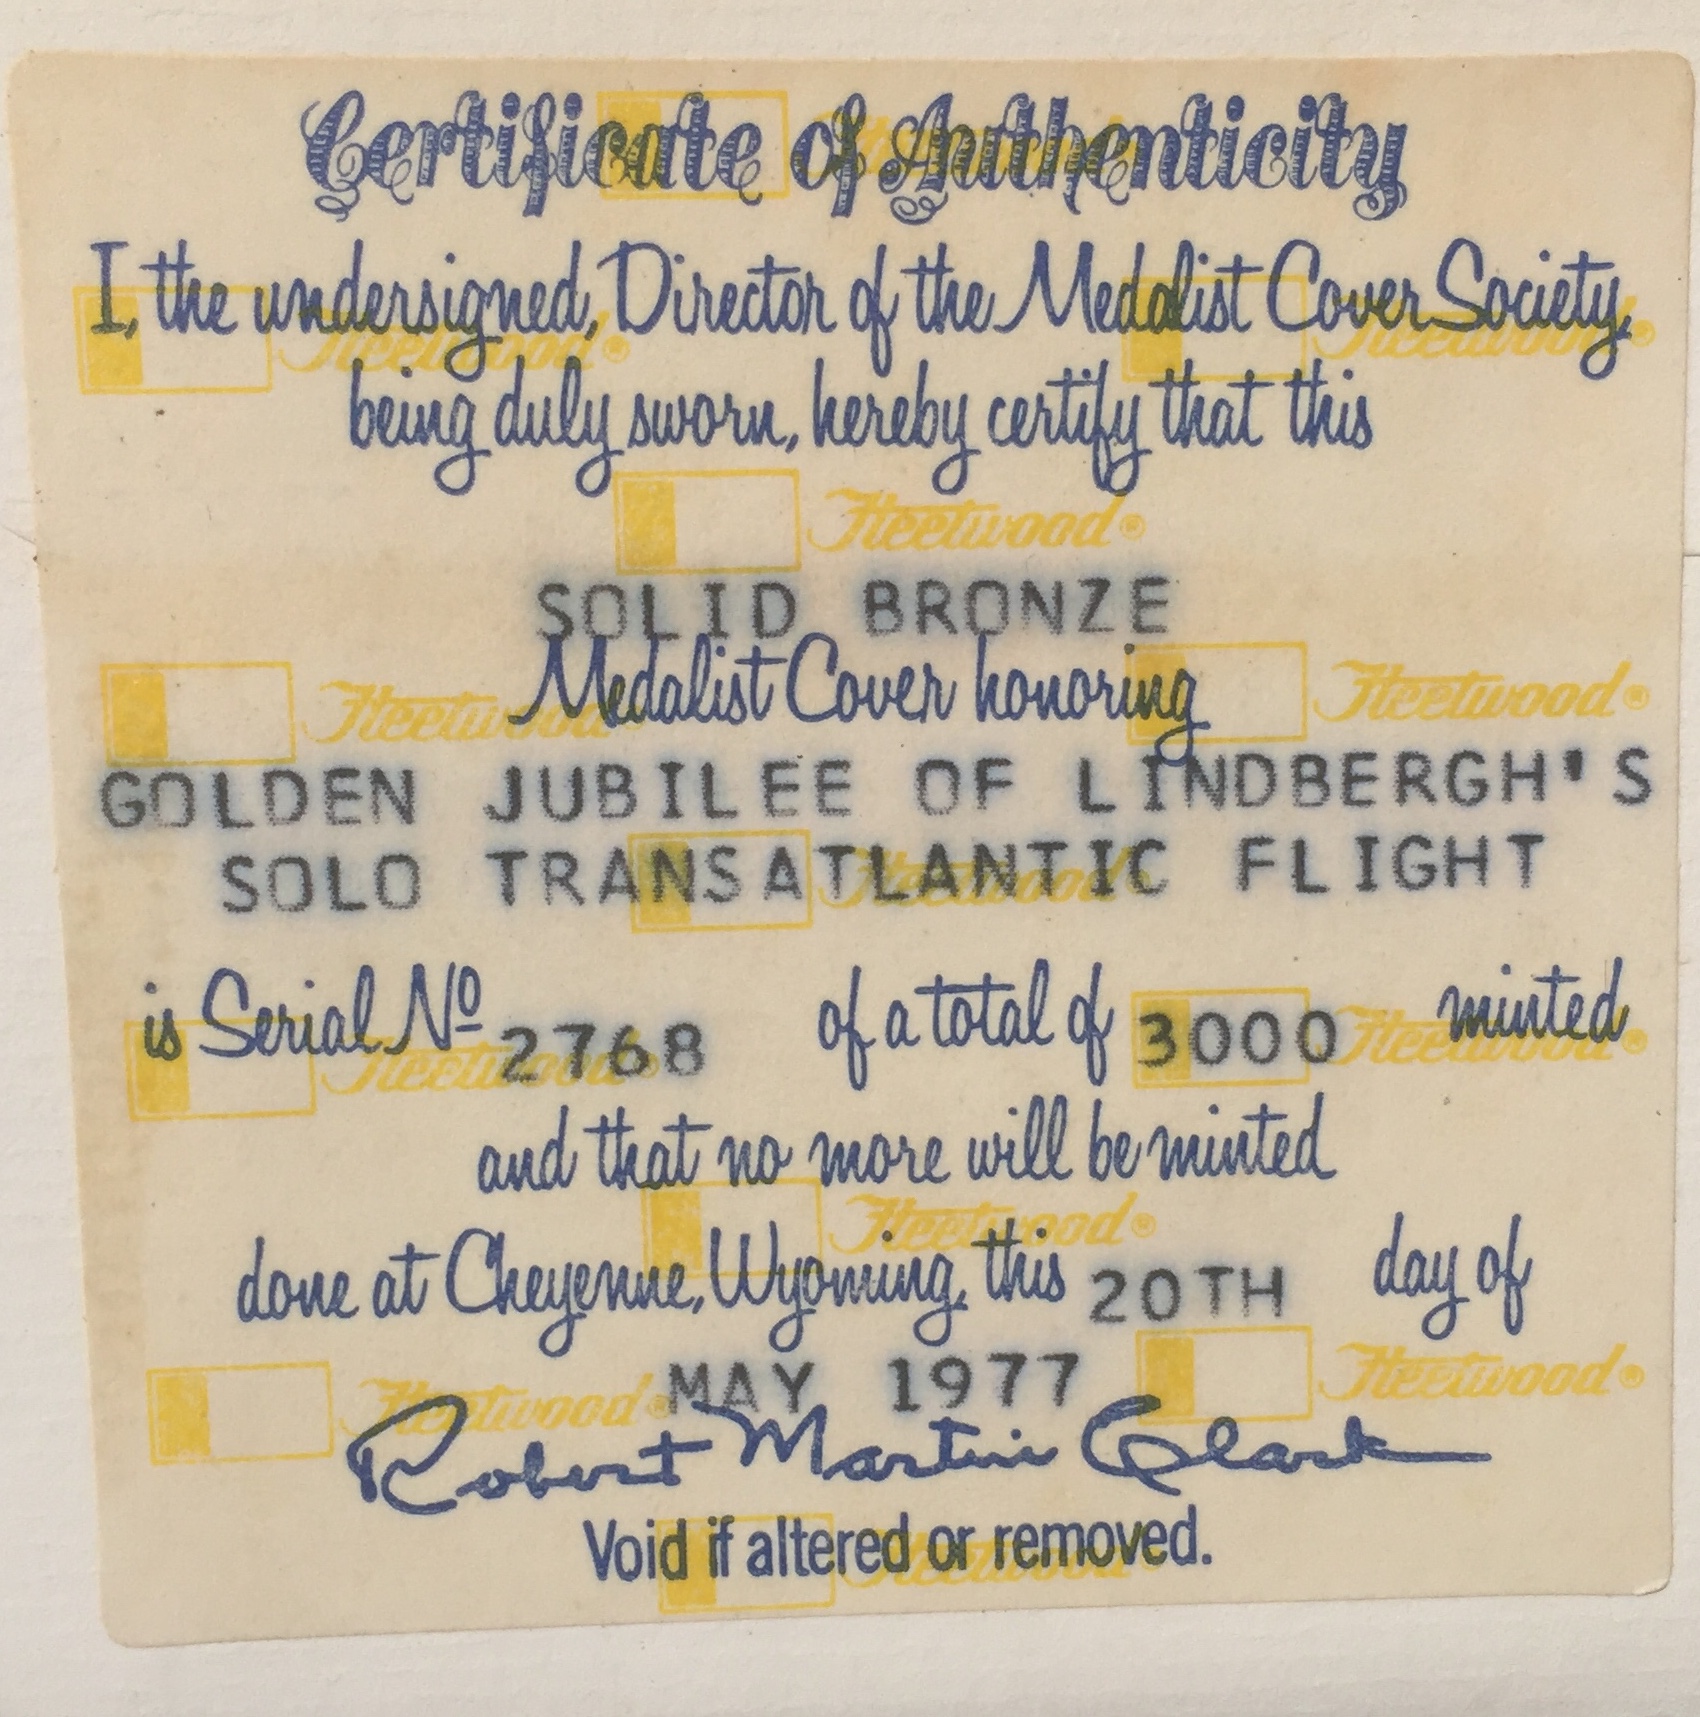 Certificate of Authenticity
I, the undersigned, Director of the Medalist Cover Society,
being duly sworn, hereby certify that this
Fleetwood®
SOLID BRONZE
Medalist Cover honoring
GOLDEN JUBILEE OF LINDBERGH'S
SOLO TRANSATLANTIC FLIGHT
is Serial Nº 2768 of a total of 3000 minted
and that no more will be minted
done at Cheyenne, Wyoming, this 20TH day of
MAY 1977
Robert Martin Clark
Void if altered or removed.